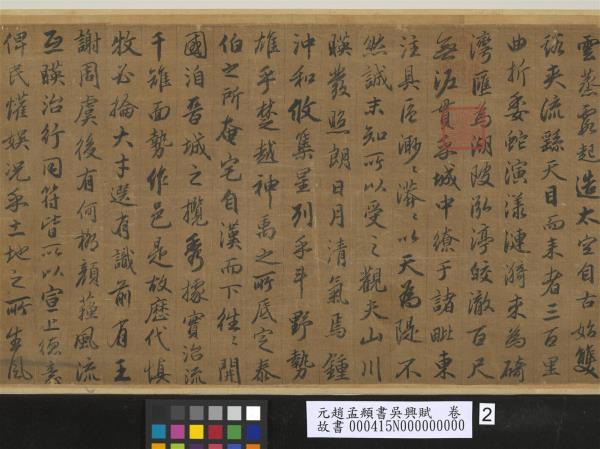 雲蒸霞起造太空自古始雙
谿夾流繇天目而来者三百里
曲折委蛇演漾漣漪束為碕
灣匯為湖陂泓渟皎澈百尺
無泥貫乎城中繚于諸毗東
注具區渺〻漭〻以天為隄不
然誠未知所以受之觀夫山川
暎發照朗日月清氣焉鍾
沖和攸集星列乎斗野勢
雄乎楚越神禹之所底定泰
伯之所奄宅自漢而下往〻開
國洎晉城之攬秀據實沿流
千雉面勢作邑是故歷代慎
牧必掄大才選有識前有王
謝周虞後有何柳顏蘇風流
互暎治行同符皆所以宣上德意
俾民懽娛況乎土地之所生風
元趙孟頫書吳興賦 卷
故書000415N000000000
2